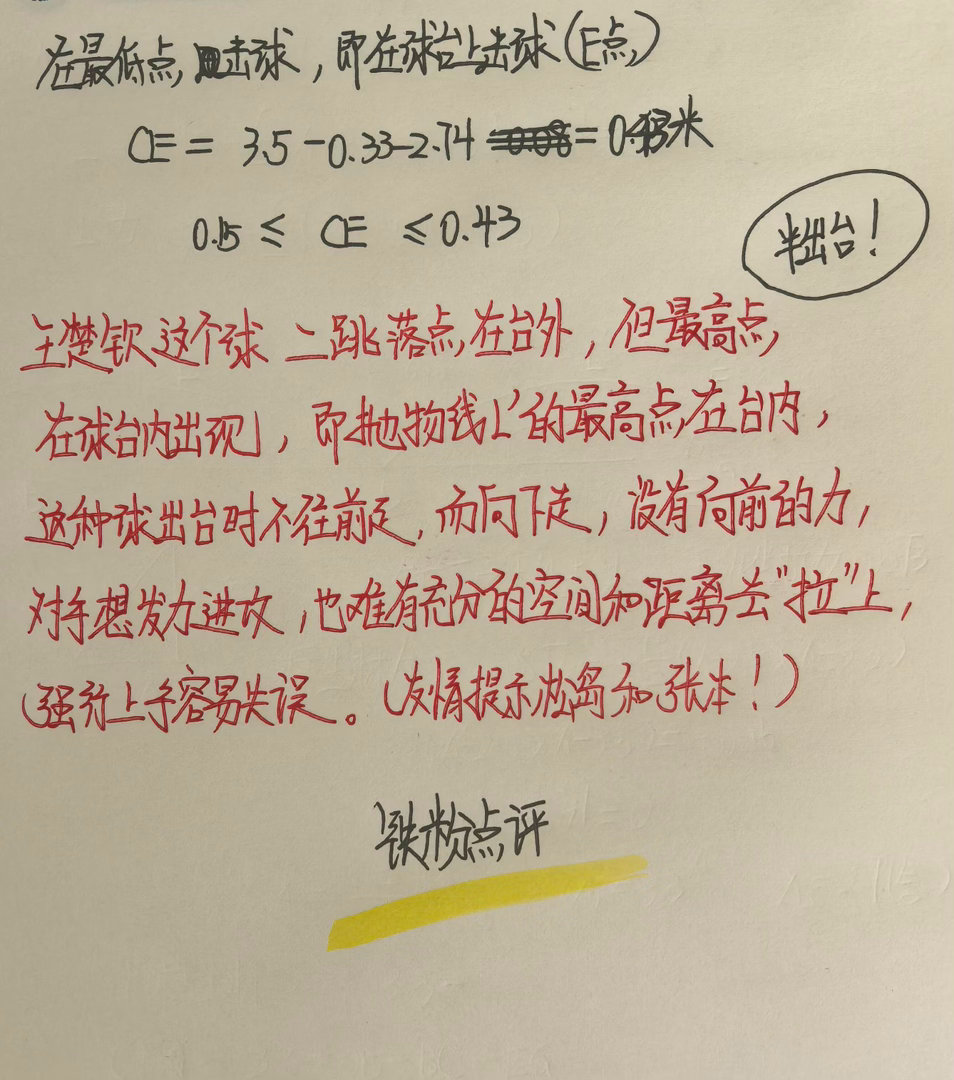 在最低点击球，即在球台上击球(E点)
CE = 3.5-0.33-2.74 = 0.43米
0.15 ≤ CE ≤ 0.43
半出台！
王楚钦这个球 二跳落点在台外，但最高点
在球台内出现，即抛物线L'的最高点在台内，
这种球出台时不往前走，而向下走，没有向前的力，
对手想发力进攻，也难有充分的空间和距离去"拉"上，
强行上手容易失误。(友情提示松岛和张本！)
铁粉点评